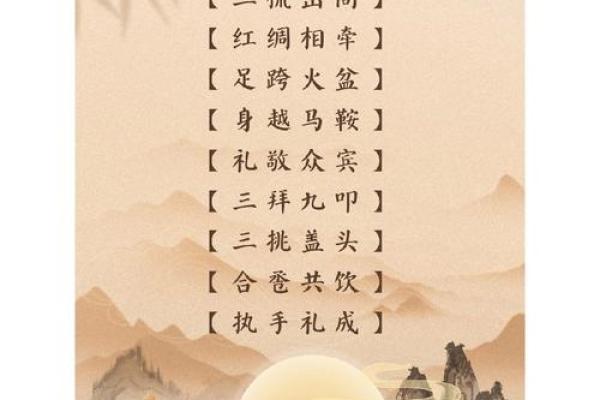 【红绸相牵】
【足跨火盆】
【身越马鞍】
【礼敬众宾】
【三拜九叩】
【三挑盖头】
【合卺共饮】
【执手礼成】